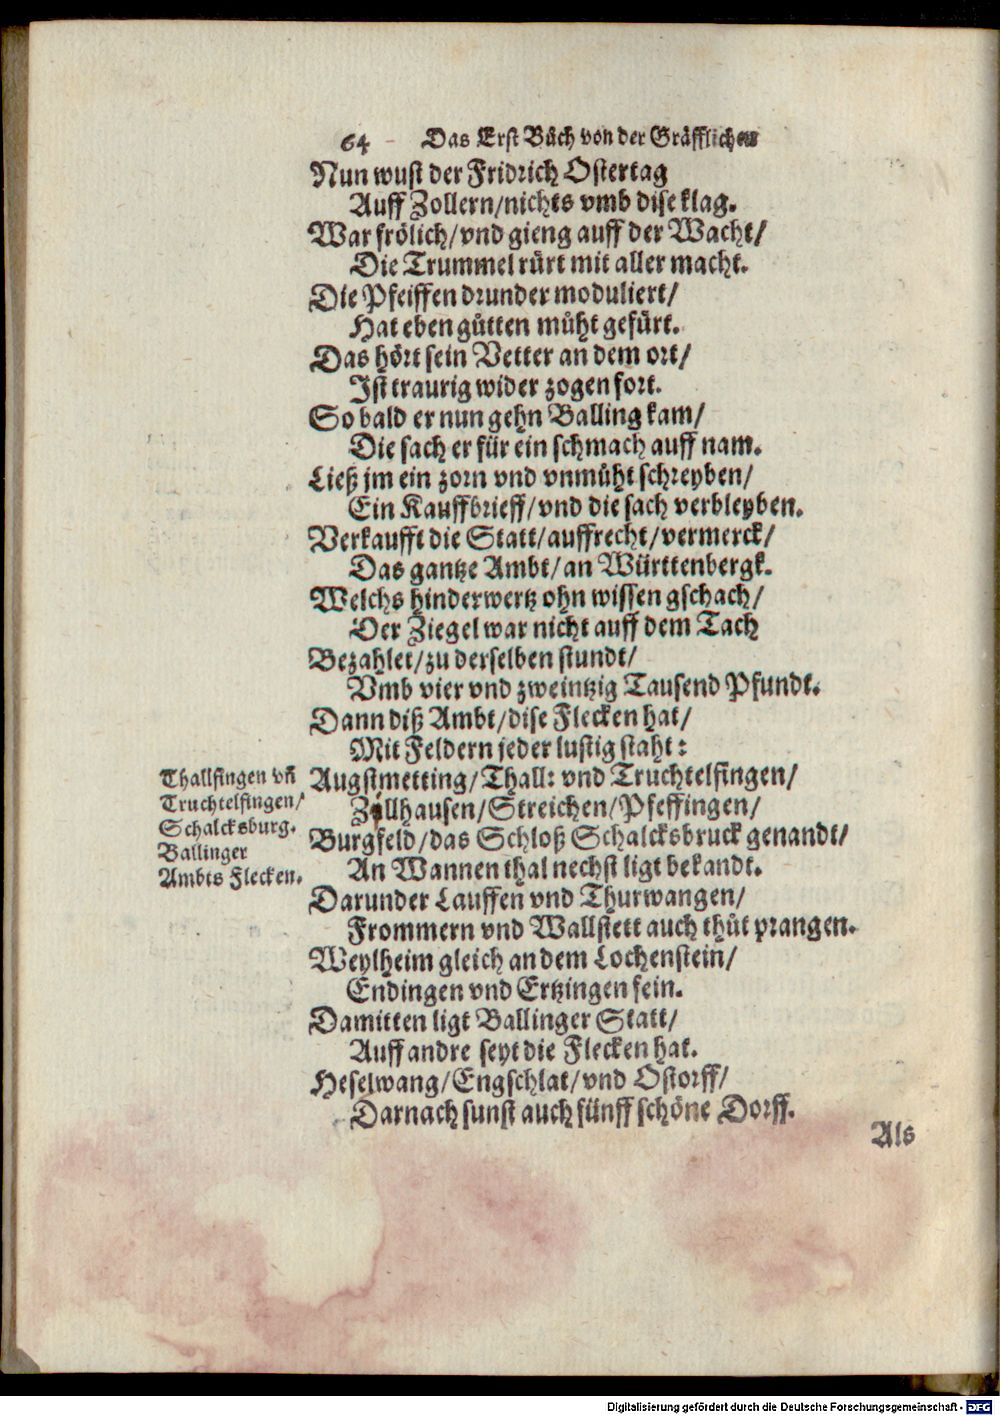 64 - Das Erst Bůch von der Gräfflichen
Nun wust der Fridrich Ostertag
Auff Zollern/nichts vmb dise klag.
War frölich/vnd gieng auff der Wacht/
Die Trummel rürt mit aller macht.
Die Pfeiffen drunder moduliert/
Hat eben gůtten můht gefürt.
Das hört sein Vetter an dem ort/
Ist traurig wider zogen fort.
So bald er nun gehn Balling kam/
Die sach er für ein schmach auff nam.
Ließ jm ein zorn vnd vnmůht schreyben/
Ein Kauffbrieff/vnd die sach verbleyben.
Verkaufft die Statt/auffrecht/vermerck/
Das gantze Ambt/an Württenbergk.
Welchs hinderwertz ohn wissen gschach/
Der Ziegel war nicht auff dem Tach
Bezahlet/zu derselben stundt/
Vmb vier vnd zweintzig Tausend Pfundt.
Dann diß Ambt/dise Flecken hat/
Mit Feldern jeder lustig staht:
Thallfingen vñ
Truchtelfingen/
Schalcksburg.
Ballinger
Ambts Flecken.
Augstmetting/Thall: vnd Truchtelfingen/
Zillhausen/Streichen/Pfeffingen/
Burgfeld/das Schloß Schalcksbruck genandt/
An Wannen thal nechst ligt bekandt.
Darunder Lauffen vnd Thurwangen/
Frommern vnd Wallstett auch thůt prangen.
Weylheim gleich an dem Lochenstein/
Endingen vnd Ertzingen fein.
Damitten ligt Ballinger Statt/
Auff andre seyt die Flecken hat.
Heselwang/Engschlat/vnd Ostorff/
Darnach sunst auch fünff schöne Dorff.
Als
Digitalisierung gefördert durch die Deutsche Forschungsgemeinschaft - DFG